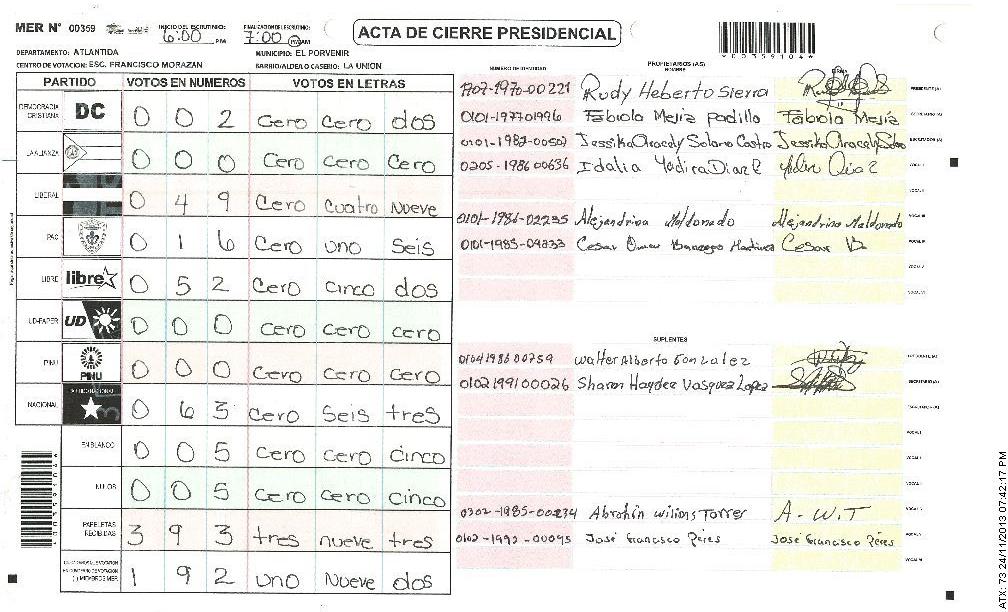 MER N° 00359 INICIO DEL ESCRUTINIO: 6:00 PM FINALIZACION ESCRUTINIO: 7:00 PM/AM ACTA DE CIERRE PRESIDENCIAL
DEPARTAMENTO: ATLANTIDA MUNICIPIO: EL PORVENIR *00359104*
CENTRO DE VOTACION: ESC. FRANCISCO MORAZAN BARRIO/ALDEA O CASERIO: LA UNION
PARTIDO VOTOS EN NUMEROS VOTOS EN LETRAS
DEMOCRACIA CRISTIANA DC 0 0 2 Cero cero dos
LA ALIANZA 0 0 0 Cero Cero Cero
LIBERAL 0 4 9 Cero Cuatro Nueve
PAC 0 1 6 Cero uno Seis
LIBRE libre 0 5 2 Cero cinco dos
UD-FAPER UD 0 0 0 Cero cero cero
PINU PINU 0 0 0 Cero cero cero
NACIONAL 0 6 3 Cero Seis tres
EN BLANCO 0 0 5 Cero Cero cinco
NULOS 0 0 5 Cero Cero cinco
PAPELETAS RECIBIDAS 3 9 3 tres nueve tres
(-) MIEMBROS MER 1 9 2 uno Nueve dos
NUMERO DE IDENTIDAD PROPIETARIOS (AS) NOMBRE FIRMA
1707-1970-00221 Rudy Heberto Sierra PRESIDENTE (A)
0101-197701996 Fabiola Mejia Padilla Fabiola Mejia SECRETARIO (A)
0101-1982-00502 Jessika Aracely Solano Castro Jessika Aracely Solano ESCRUTADOR (A)
0205-198600636 Idalia Yadira Diaz VOCAL I
VOCAL II
0101-1986-02235 Alejandrina Maldonado Alejandrina Maldonado VOCAL III
0101-1985-04833 Cesar Omar Cesar VOCAL IV
VOCAL V
VOCAL VI
SUPLENTES
0104198600759 Walter Alberto Gonzalez PRESIDENTE (A)
0102199100026 Sharon Haydee Vasquez Lopez SECRETARIO (A)
ESCRUTADOR (A)
VOCAL I
VOCAL II
0302-1985-00234 Abrahin Wilions Torres A-W.T
0102-1992-00095 José Francisco Péres José Francisco Péres
ATX: 73 24/11/2013 07:42:17 PM